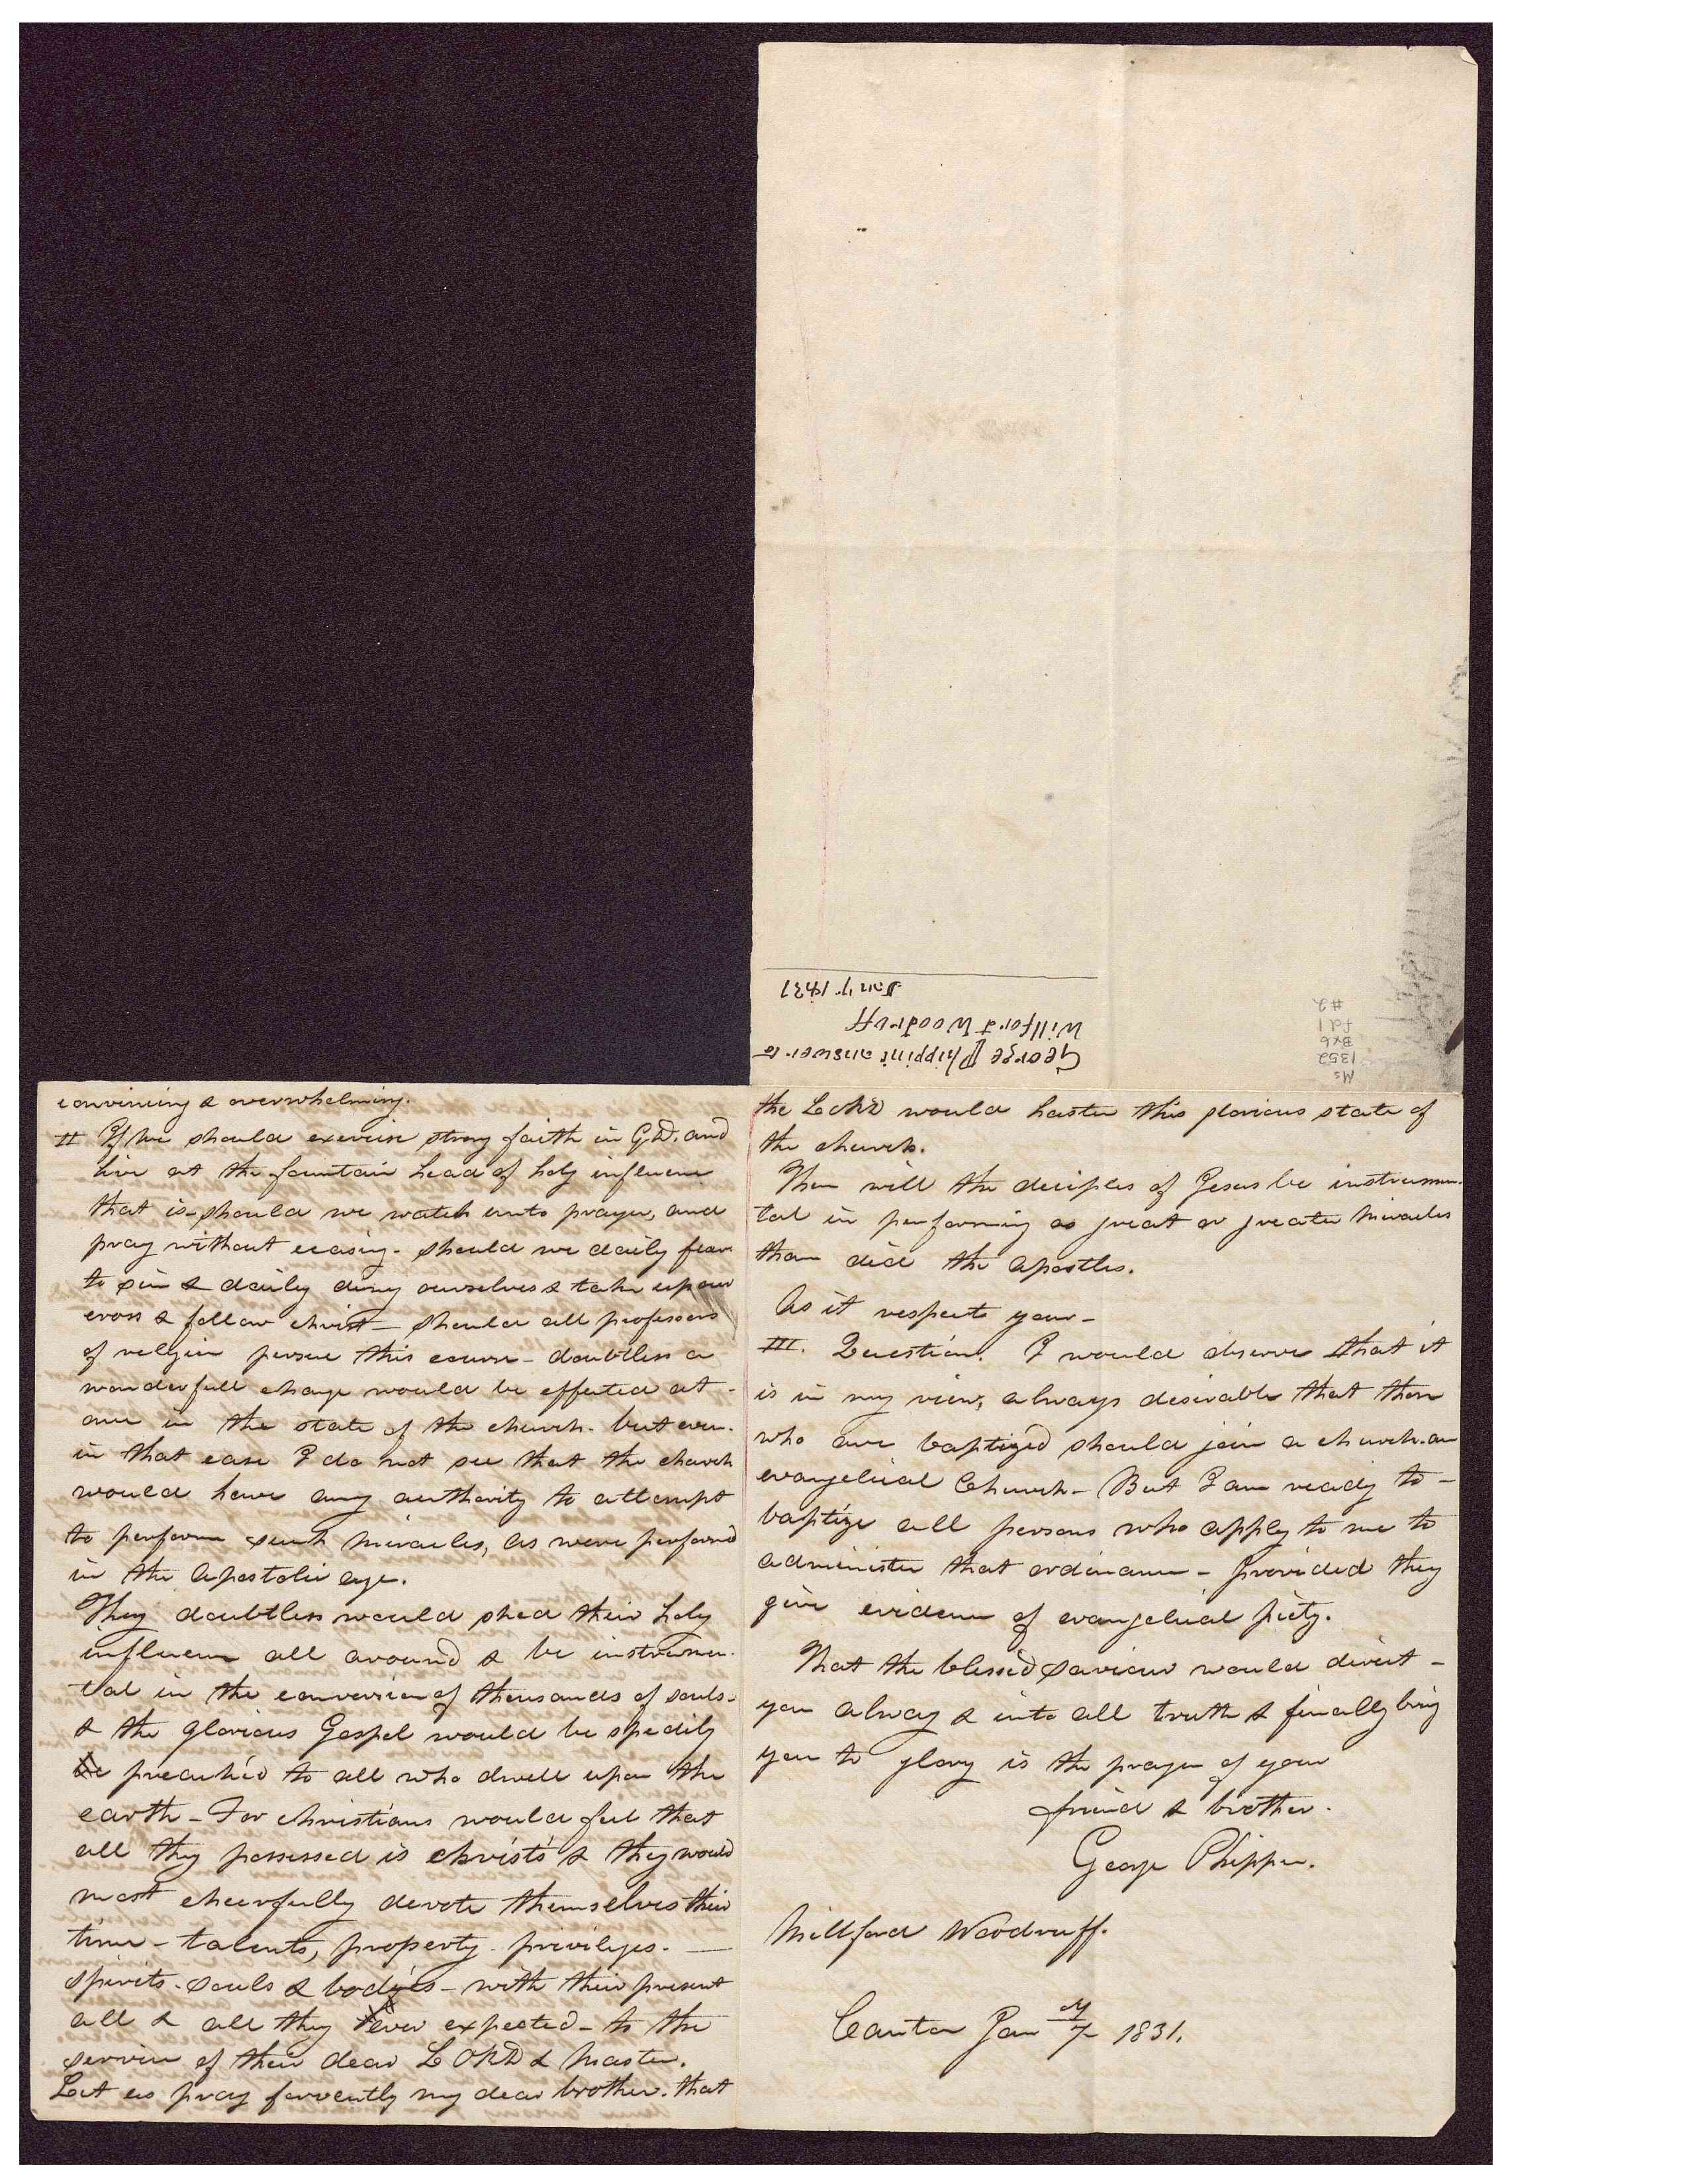 convincing & overwhelming.
II If we should exercise strong faith in GOD. and
live at the fountain head of holy influence
that is - should we watch unto prayer, and
pray without ceasing - should we daily fear
to sin & daily deny ourselves & take up our
cross & follow christ - should all professors
of religion persue this course - doubtless a
wonderfull change would be effected at -
once in the state of the church - but even
in that case I do not see that the church
would have any authority to attempt
to perform such miracles, as were performd
in the Apostolic age.
They doubtless would shed their holy
influence all around & be instrumen-
tal in the conversion of thousands of souls -
& the glorious Gospel would be spedily
be preachéd to all who dwell upon the
earth - For christians would feel that
all they possessed is christ's & they would
most cheerfully devote themselves their
time - talents, property - privileges. —
spirits - souls & bodies - with their present
all & all they ever expected - to the
service of their dear LORD & Master.
Let us pray fervently my dear brother. that
the LORD would hasten this glorious state of
the church.
Then will the deciples of Jesus be instrumen-
tal in performing as great or greater miracles
than did the Apostles.
As it respects your -
III. Question. I would observe that it
is in my view, always desirable that those
who are baptizéd should join a church - an
evangelical Church - But I am ready to -
baptize all persons who apply to me to
administer that ordinance - provided they
give evidence of evangelical piety.
That the blesséd Saviour would direct -
you alway & into all truth & finally bring
you to glory is the prayer of your
friend & brother.
George Phippen.
Willford Woodruff.
Canton Jan y 7 1831.
George Phippins answer to
Willford Woodruff
Jan 7. 1831
Ms
1352
Bx6
fd 1
#2